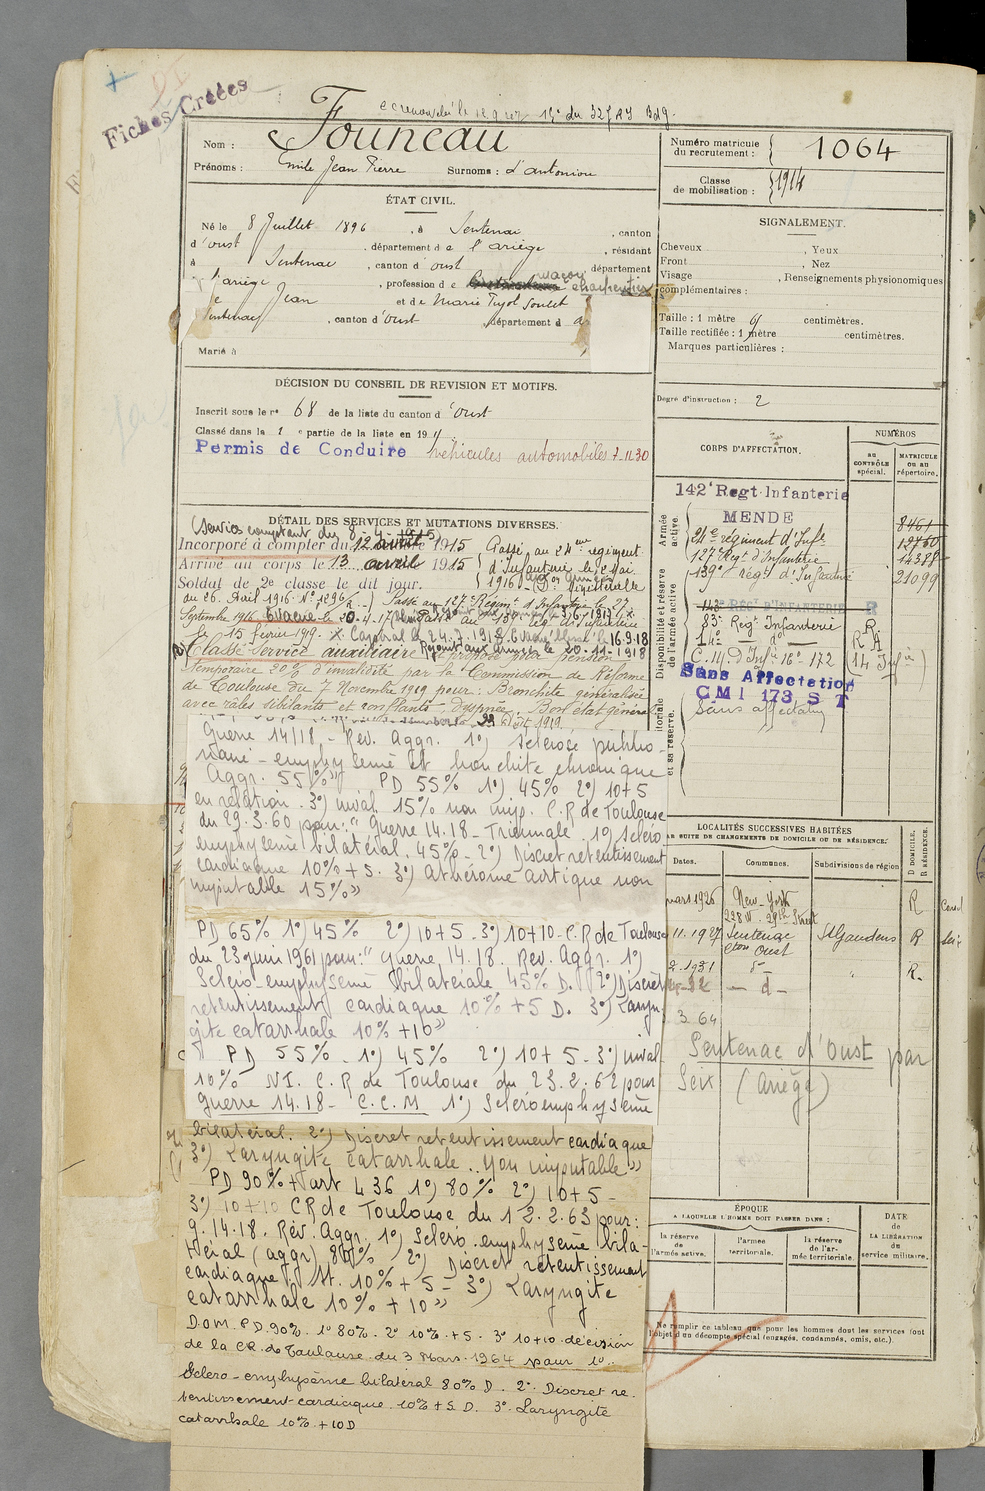 Fiches Créées
15e du 327 RI
Nom : Founeau
Prénoms : Emile Jean Pierre Surnoms : d'antoniou
Numéro matricule du recrutement : 1064
Classe de mobilisation : 1914
ÉTAT CIVIL.
Né le 8 Juillet 1896, à Sentenac, canton
d'oust, département de l'ariège, résidant
à Sentenac, canton d'oust département
l'ariège, profession de maçon charpentier
Jean et de Marie Pujol Soulet
Sentenac, canton d'oust département d
Marié à
SIGNALEMENT.
Cheveux , Yeux
Front , Nez
Visage , Renseignements physionomiques
complémentaires :
Taille : 1 mètre 61 centimètres.
Taille rectifiée : 1 mètre centimètres.
Marques particulières :
Degré d'instruction : 2
DÉCISION DU CONSEIL DE REVISION ET MOTIFS.
Inscrit sous le no 68 de la liste du canton d'oust
Classé dans la 1e partie de la liste en 19
Permis de Conduire véhicules automobiles 7.11.30
CORPS D'AFFECTATION.
NUMÉROS
au CONTRÔLE spécial.
MATRICULE ou au répertoire.
Armée active.
142e Regt Infanterie
MENDE 8461
24e régiment d'Infie 12760
127e Régt d'Infanterie 14388
139e régt d'Infanterie 21099
Disponibilité et réserve de l'armée active
143e RÉGt D'INFANTERIE R
83e Regt Infanterie R
14e d° R
C.M. d'Infie 16e 172 (14 Infie)
Sans Affectation
CMI 173 S T
Sans affectation
et sa réserve.
DÉTAIL DES SERVICES ET MUTATIONS DIVERSES.
(Services comptant du 8 1915
Incorporé à compter du 12 avril 1915
Arrivé au corps le 13 avril 1915
Soldat de 2e classe le dit jour.
Passé au 24eme régiment
d'Infanterie le 2 Mai
1916 Don Ministérielle
du 26 Avril 1916 No 1296/2 Passé au 127e Régimt d'Infanterie le 27
Septembre 1916. Evacué le Passé au 139e Régt d'Infanterie
le 15 février 1919. Caporal le 24.7.1918. Evacué 16.9.18
Classé Service auxiliaire Rejoint aux armées le 20-11-1918 proposé pour pension
temporaire 20% d'invalidité par la Commission de Réforme
de Toulouse du 7 Novembre 1919 pour : Bronchite généralisée
avec râles sibilants et ronflants, dyspnée. Bon état général
Guerre 14/18 - Rev. Aggr. 1°) sclérose pulmo-
naire - emphysème et bronchite chronique
Aggr. 55%" PD 55% 1°) 45% 2°) 10+5
en relation. 3°) inval. 15% non imp. C.R de Toulouse
du 29.3.60 pour : "Guerre 14.18 - Triennale. 1°) scléro
emphysème bilatéral. 45% - 2°) Discret retentissement
cardiaque 10% + 5. 3°) athérome aortique non
imputable 15%"
PD 65% 1°) 45% 2°) 10+5 - 3°) 10+10 - C.R de Toulouse
du 23 juin 1961 pour : "guerre 14.18. Rev. Aggr. 1°)
Scléro-emphysème bilatérale 45% D. 2°) Discret
retentissement cardiaque 10% + 5 D. 3°) Laryn-
gite catarrhale 10% + 10"
PD 55% - 1°) 45% 2°) 10+5 - 3°) inval
10% NI. C.R de Toulouse du 23.2.62 pour
guerre 14.18 - C.C.M 1°) Scléroemphysème
bilatéral. 2°) Discret retentissement cardiaque
3°) Laryngite catarrhale. Non imputable"
PD 90% + art L 36 1°) 80% 2°) 10+5 -
3°) 10+10 CR de Toulouse du 12.2.63 pour :
g. 14.18. Rév. Aggr. 1°) Scléro-emphysème bila-
téral (aggr) 80% 2°) Discret retentissement
cardiaque St. 10% + 5 - 3°) Laryngite
catarrhale 10% + 10"
D.O.M. P.D. 90% - 1° 80% - 2° 10% + 5 - 3° 10+10 décision
de la C.R. de Toulouse du 3 Mars 1964 pour 1°.
Scléro-emphysème bilatéral 80% D - 2°. Discret re-
tentissement cardiaque 10% + 5 D. 3° Laryngite
catarrhale 10% + 10 D
LOCALITÉS SUCCESSIVES HABITÉES
PAR SUITE DE CHANGEMENTS DE DOMICILE OU DE RÉSIDENCE.
Dates. Communes. Subdivisions de région D DOMICILE. R RÉSIDENCE.
mars 1926 New-York R
228 W. 29th Street
11.1927 Sentenac St Gaudens R
cton Oust
2.1931 d° " R.
- d -
3 64
Sentenac d'Oust par
Seix (Ariège)
ÉPOQUE
A LAQUELLE L'HOMME DOIT PASSER DANS :
la réserve de l'armée active.
l'armée territoriale.
la réserve de l'armée territoriale.
DATE de LA LIBÉRATION du service militaire.
Ne remplir ce tableau que pour les hommes dont les services font
l'objet d'un décompte spécial (engagés, condamnés, omis, etc.).